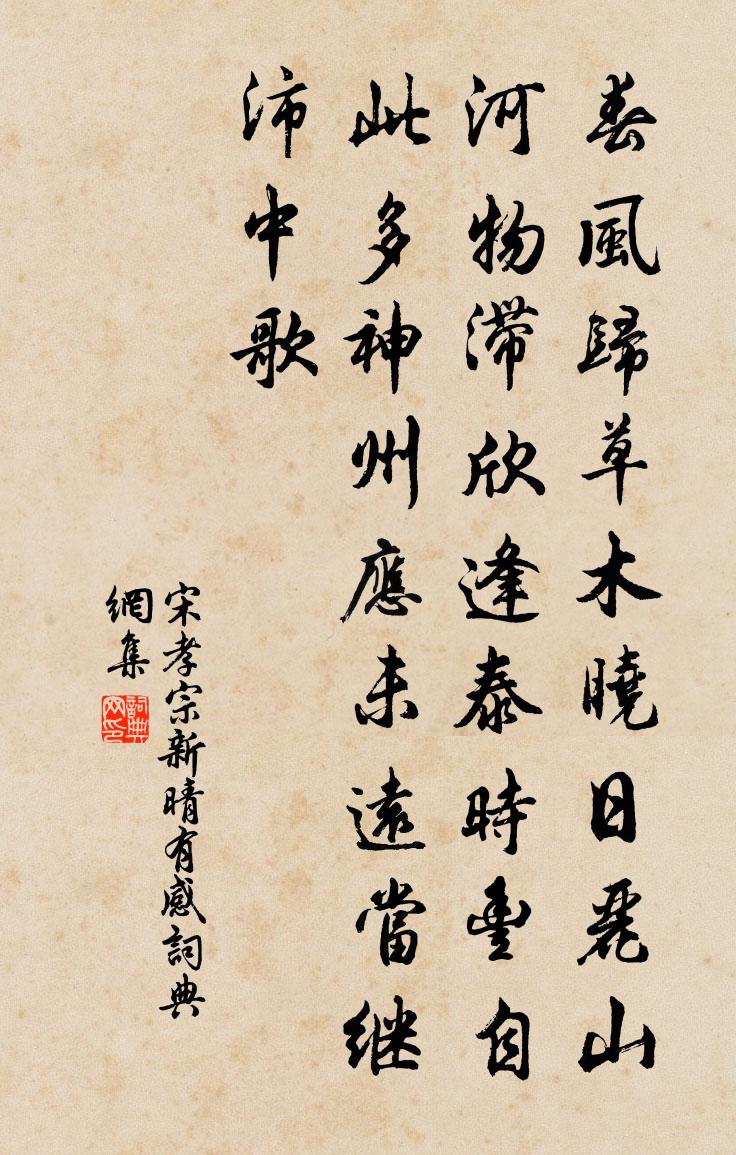 春風歸草木曉日麗山
河物滯欣逢泰時豐自
此多神州應未遠當继
沛中歌
宋孝宗新晴有感詞典
網集
詞典网印